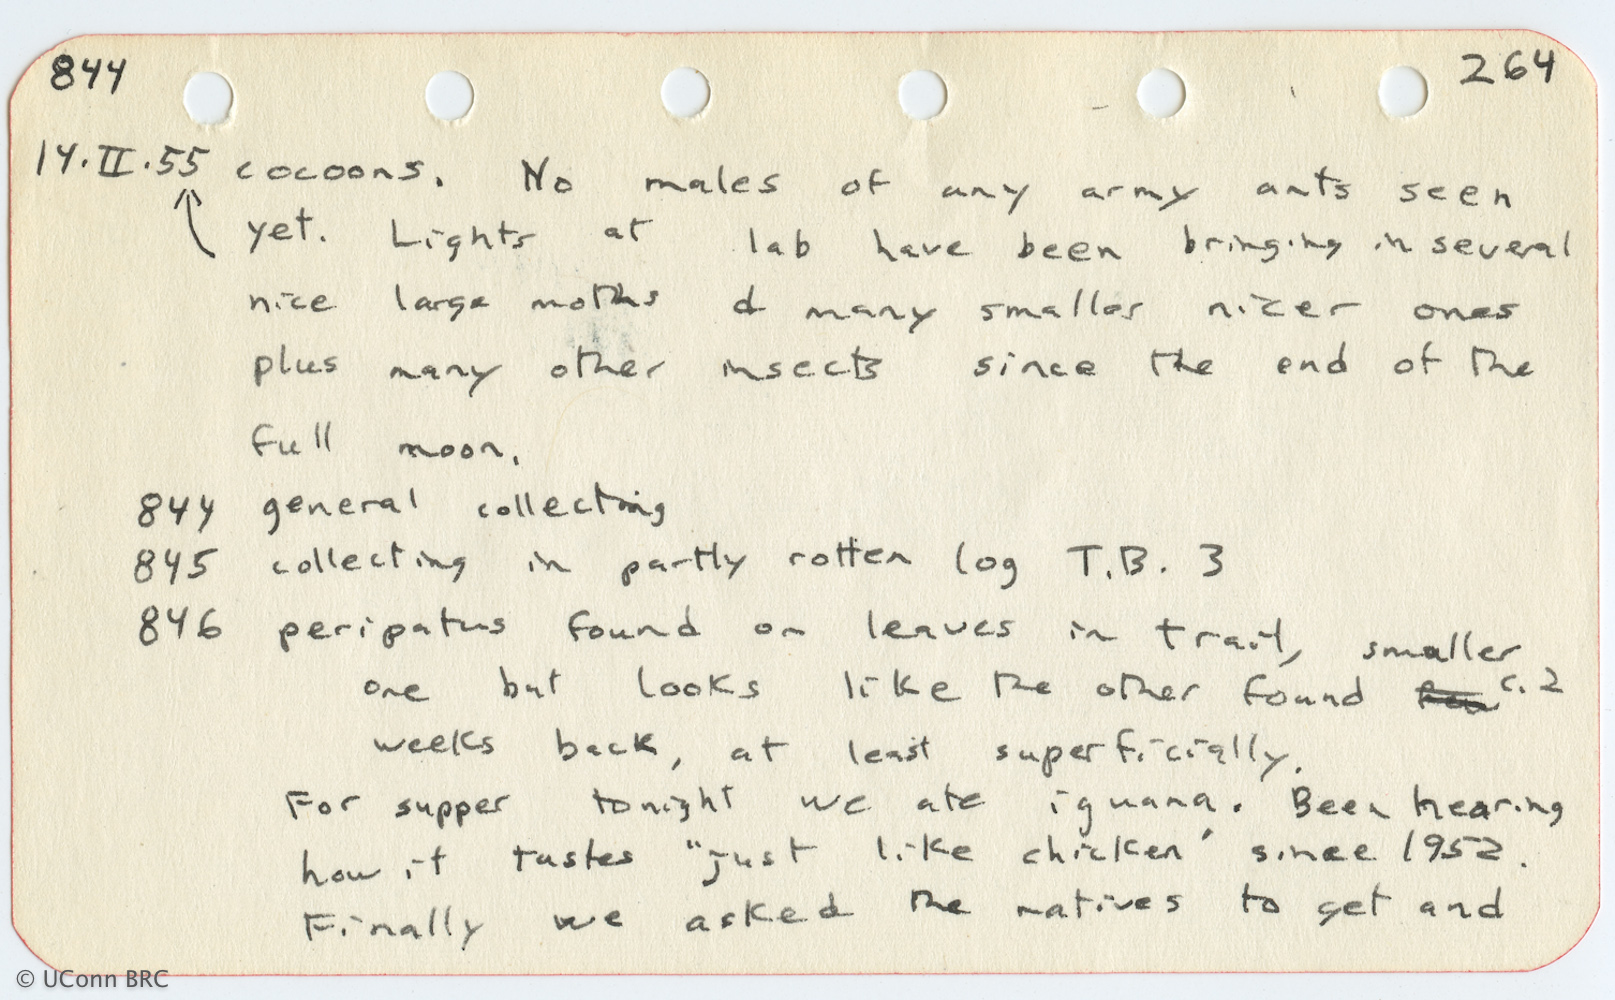 844 264
14.II.55 cocoons. No males of any army ants seen
yet. Lights at lab have been bringing in several
nice large moths & many smaller nicer ones
plus many other insects since the end of the
full moon.
844 general collecting
845 collecting in partly rotten log T.B. 3
846 peripatus found on leaves in trail, smaller
one but looks like the other found c. 2
weeks back, at least superficially.
For supper tonight we ate iguana. Been hearing
how it tastes "just like chicken" since 1952.
Finally we asked the natives to get and
© UConn BRC